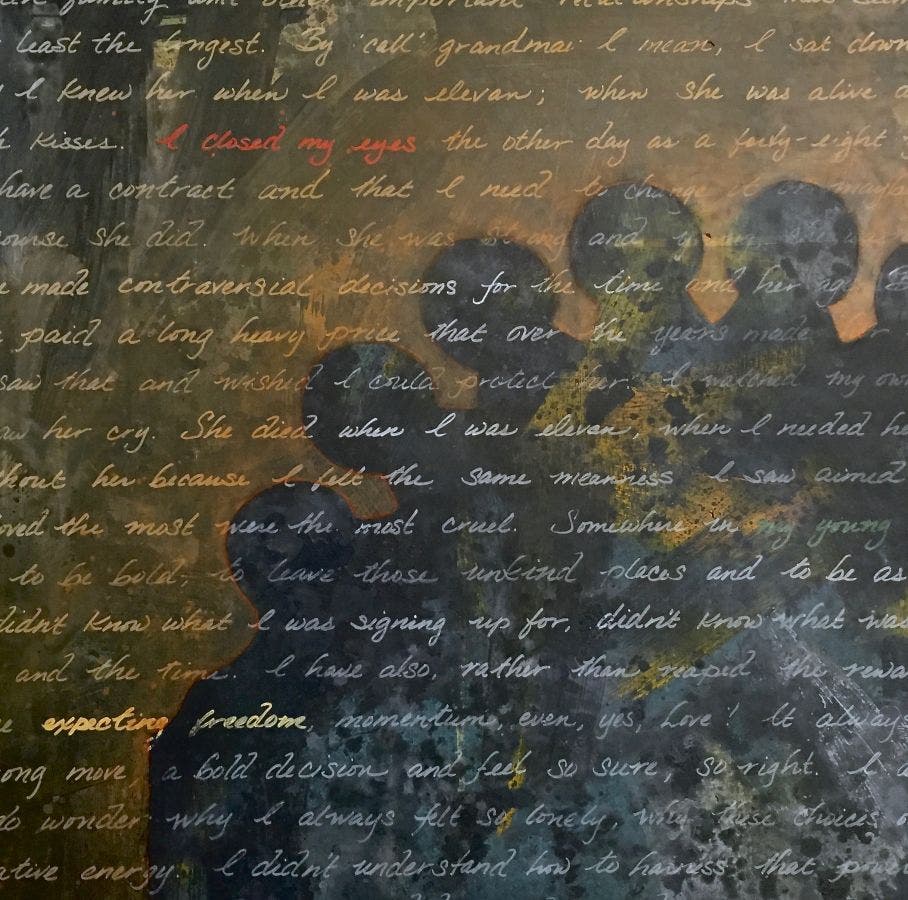 family and other important relationships that
least the longest. By 'call' grandma I mean, I sat down
I knew her when I was elevan; when she was alive
Kisses. I closed my eyes the other day as a forty-eight
have a contract and that I need to change it or maybe
she did. When she was strong and
made contraversial decisions for the time and her age
paid a long heavy price that over the years made
saw that and wished I could protect her. I watched my own
her cry. She died when I was eleven, when I needed
because I felt the same meanness I saw aimed
the most were the most cruel. Somewhere in my young
to be bold, to leave those unkind places and to be as
didn't know what I was signing up for, didn't know what
and the time. I have also, rather than reaped the
expecting freedom, momentum, even, yes, Love! It always
move, a bold decision and feel so sure, so right. I
do wonder why I always felt so lonely, why these choices
energy. I didn't understand how to harness that